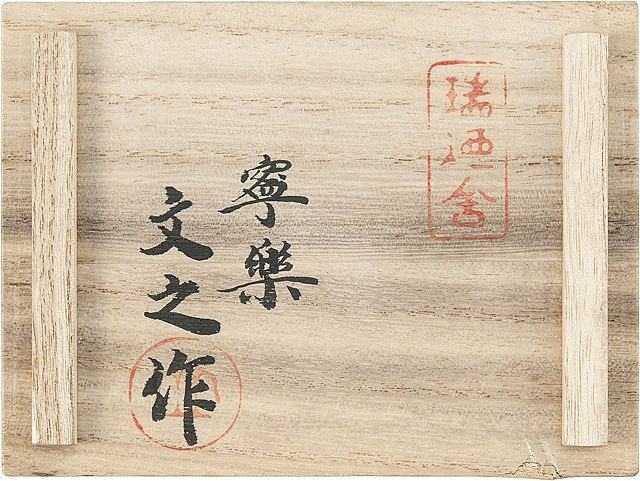 瑞廼舎
寧樂
文之作